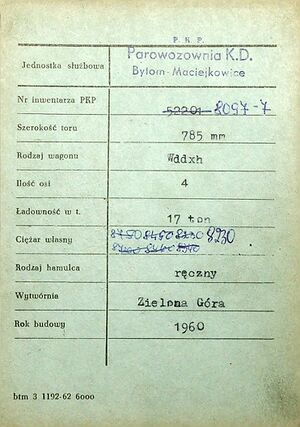 P. K. P.
Jednostka służbowa Parowozownia K.D.
Bytom-Maciejkowice
Nr inwentarza PKP 52201 8097-7
Szerokość toru 785 mm
Rodzaj wagonu Wddxh
Ilość osi 4
Ładowność w t. 17 ton
Ciężar własny 8230
Rodzaj hamulca ręczny
Wytwórnia Zielona Góra
Rok budowy 1960
btm 3 1192-62 6000